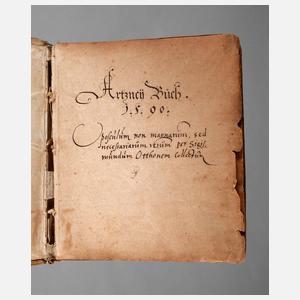 Artzneÿ Bůch.
1.5.00.
Opusculum non magnarum, sed
necessariarum rerum per Sigis
mundum Otthonem Collectum